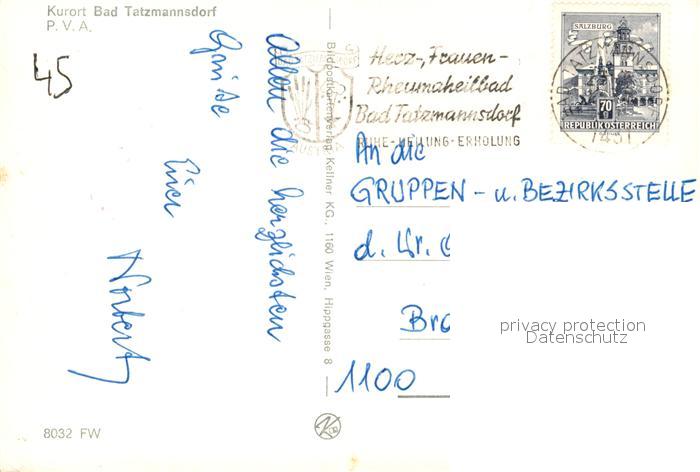 Kurort Bad Tatzmannsdorf
P. V. A.
45
Allen die herzlichsten
Grüße
Euer
Norbert
8032 FW
Bildpostkartenverlag Kellner KG., 1160 Wien, Hippgasse 8
Herz-, Frauen-
Rheumaheilbad
Bad Tatzmannsdorf
RUHE-HEILUNG-ERHOLUNG
SALZBURG
70
REPUBLIK ÖSTERREICH
BAD TATZMANNSDORF
7431
An die
GRUPPEN - u. BEZIRKSSTELLE
d.
1100
privacy protection
Datenschutz